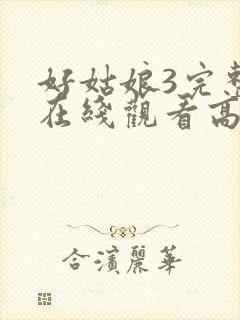 好姑娘3完整
在綫觀看高
合濱麗華